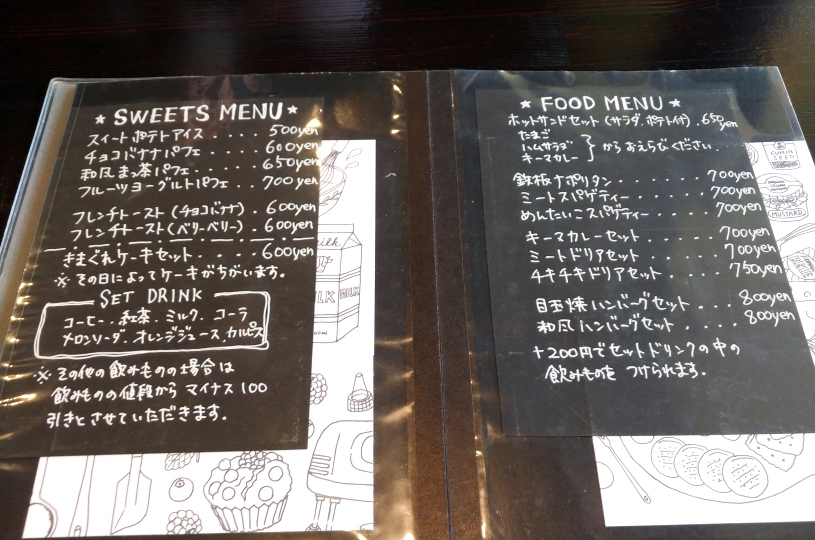 ★ SWEETS MENU ★
スイートポテトアイス . . . . 500yen
チョコバナナパフェ . . . . 600yen
和風まっ茶パフェ . . . . 650yen
フルーツヨーグルトパフェ . . 700yen
フレンチトースト(チョコバナナ) . 600yen
フレンチトースト(ベリーベリー) . 600yen
きまぐれケーキセット . . . 600yen
※ その日によってケーキがちがいます。
SET DRINK
コーヒー、紅茶、ミルク、コーラ
メロンソーダ、オレンジジュース、カルピス
※ その他の飲みものの場合は
飲みものの値段から マイナス100
引きとさせていただきます。
milk
MILK
MILK
★ FOOD MENU ★
ホットサンドセット (サラダ、ポテト付) . 650yen
たまご
ハムサラダ
キーマカレー
} からおえらびください.
鉄板ナポリタン . . . . . 700yen
ミートスパゲティー . . . . 700yen
めんたいこスパゲティー . . . . 700yen
キーマカレーセット . . . . . 700yen
ミートドリアセット . . . . 700yen
チキチキドリアセット . . . . 750yen
目玉焼ハンバーグセット . . . 800yen
和風ハンバーグセット . . . . 800yen
+200円でセットドリンクの中の
飲みものを つけられます。
CUMIN
SEED
MUSTARD